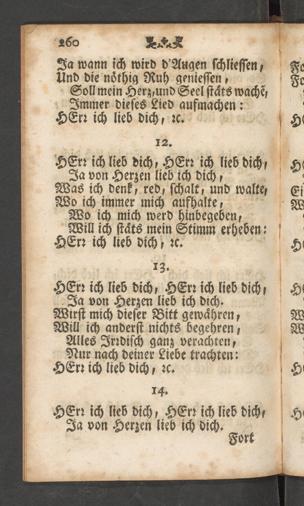 260
Ja wann ich wird d'Augen schliessen,
Und die nöthig Ruh geniessen,
Soll mein Herz, und Seel stäts wachē,
Immer dieses Lied aufmachen:
HErr ich lieb dich, ꝛc.
12.
HErr ich lieb dich, HErr ich lieb dich,
Ja von Herzen lieb ich dich,
Was ich denk, red, schalt, und walte,
Wo ich immer mich aufhalte,
Wo ich mich werd hinbegeben,
Will ich stäts mein Stimm erheben:
HErr ich lieb dich, ꝛc.
13.
HErr ich lieb dich, HErr ich lieb dich,
Ja von Herzen lieb ich dich.
Wirst mich dieser Bitt gewähren,
Will ich anderst nichts begehren,
Alles Irrdisch ganz verachten,
Nur nach deiner Liebe trachten:
HErr ich lieb dich, ꝛc.
14.
HErr ich lieb dich, HErr ich lieb dich,
Ja von Herzen lieb ich dich.
Fort